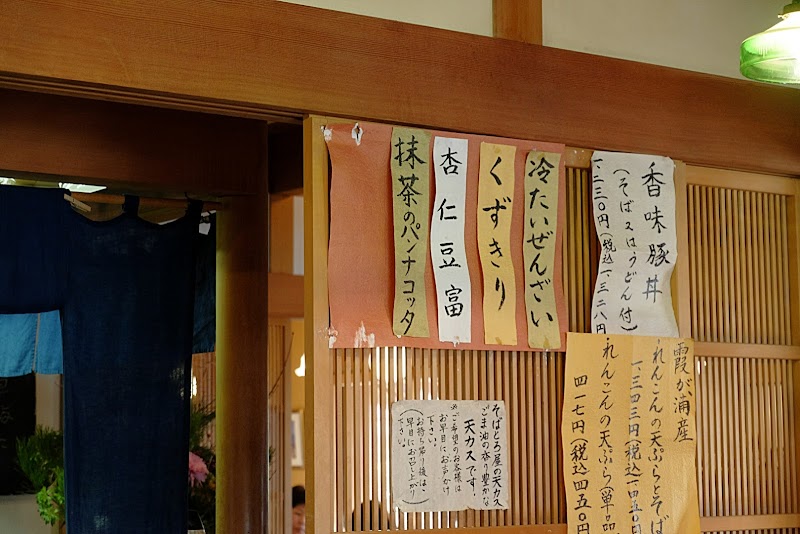 香味豚丼
(そば又はうどん付
一、二三〇円(税込一、三二八円
冷たいぜんざい
くずきり
杏仁豆富
抹茶のパンナコッタ
霞が浦産
れんこんの天ぷらとそば
一、三四三円(税込一四五〇円
れんこんの天ぷら(単品
四一七円(税込四五〇円
そばとろ屋の天カス
ごま油の香り豊かな
天カスです。
※ご希望のお客様は
お早目にお声かけ
下さい。
(お持ち帰り後は、
早目にお召し上がり
下さい。)